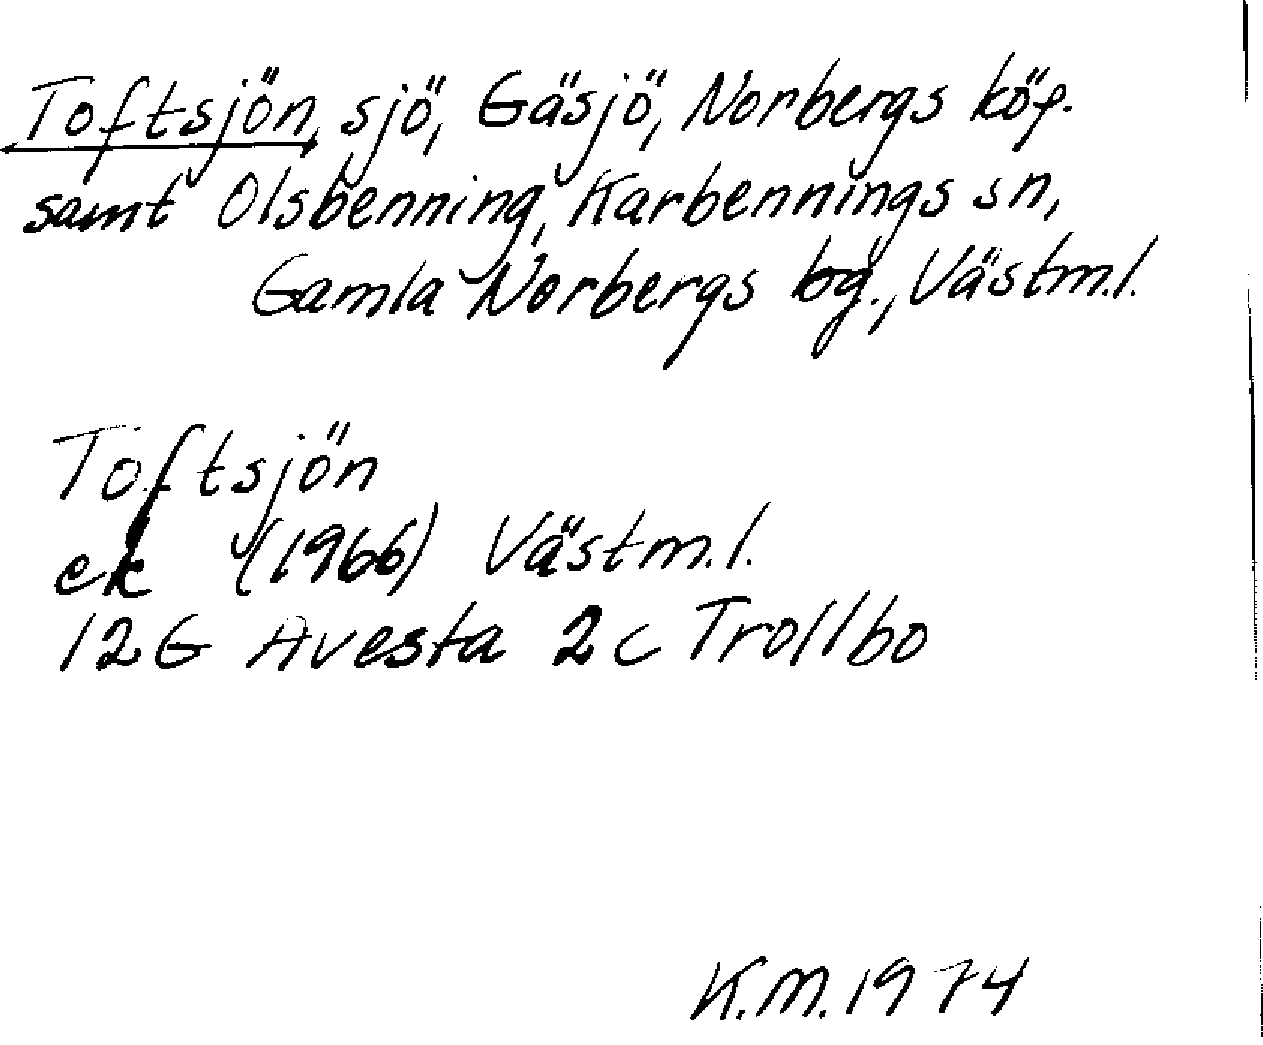 Toftsjön, sjö, Gäsjö, Norbergs köp.
samt Olsbenning, Karbennings sn,
Gamla Norbergs bg., Västm.l.
Toftsjön
ek (1966) Västm.l.
12G Avesta 2c Trollbo
K.M. 1974